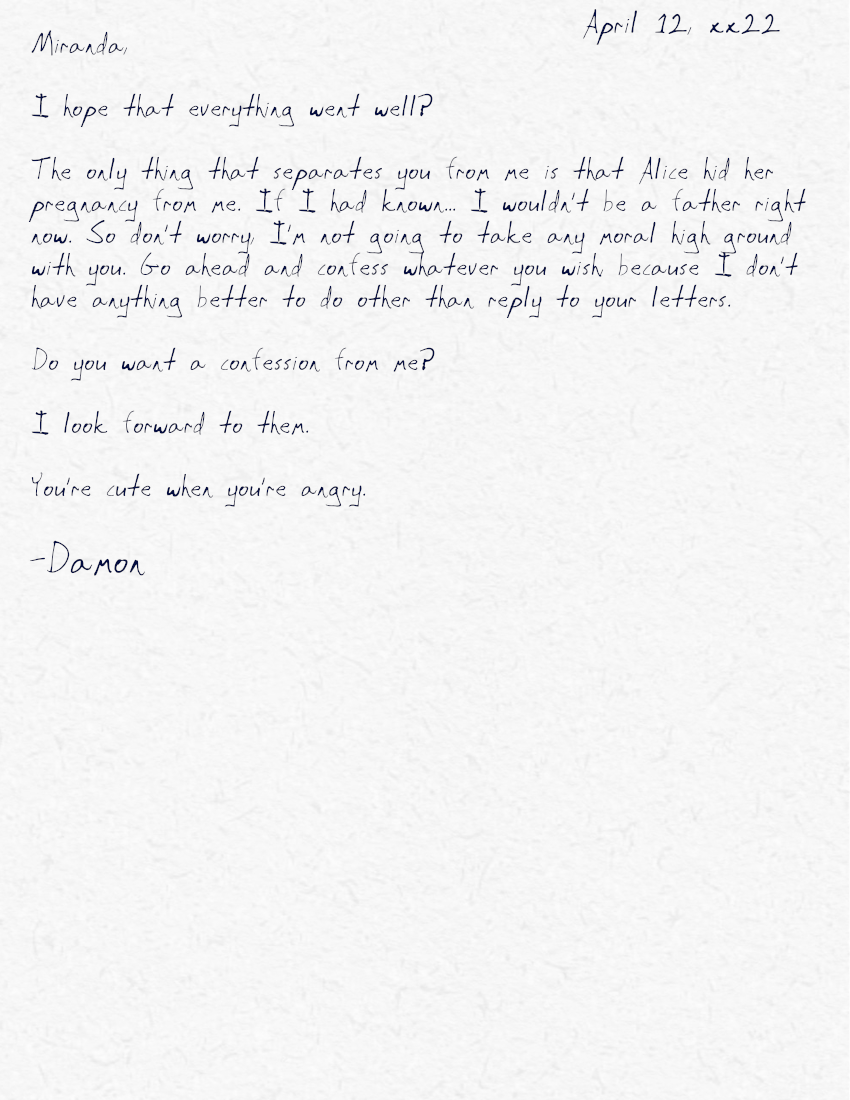 April 12, xx22
Miranda,
I hope that everything went well?
The only thing that separates you from me is that Alice hid her
pregnancy from me. If I had known... I wouldn't be a father right
now. So don't worry, I'm not going to take any moral high ground
with you. Go ahead and confess whatever you wish, because I don't
have anything better to do other than reply to your letters.
Do you want a confession from me?
I look forward to them.
You're cute when you're angry.
-Damon